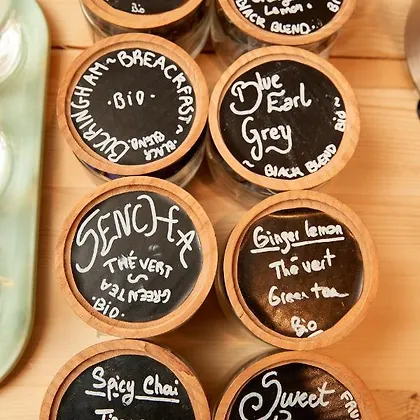 BiO
Lemon
BLACK BLEND
BUCKINGHAM~BREACKFAST~
·BiO·
·BLACK BLEND·
Blue
Earl
Grey
~BLACK BLEND BiO~
SENCHA
THÉ VERT
GREEN TEA
·BiO·
Ginger lemon
Thé vert
Green tea
Bio
Spicy Chai
Sweet